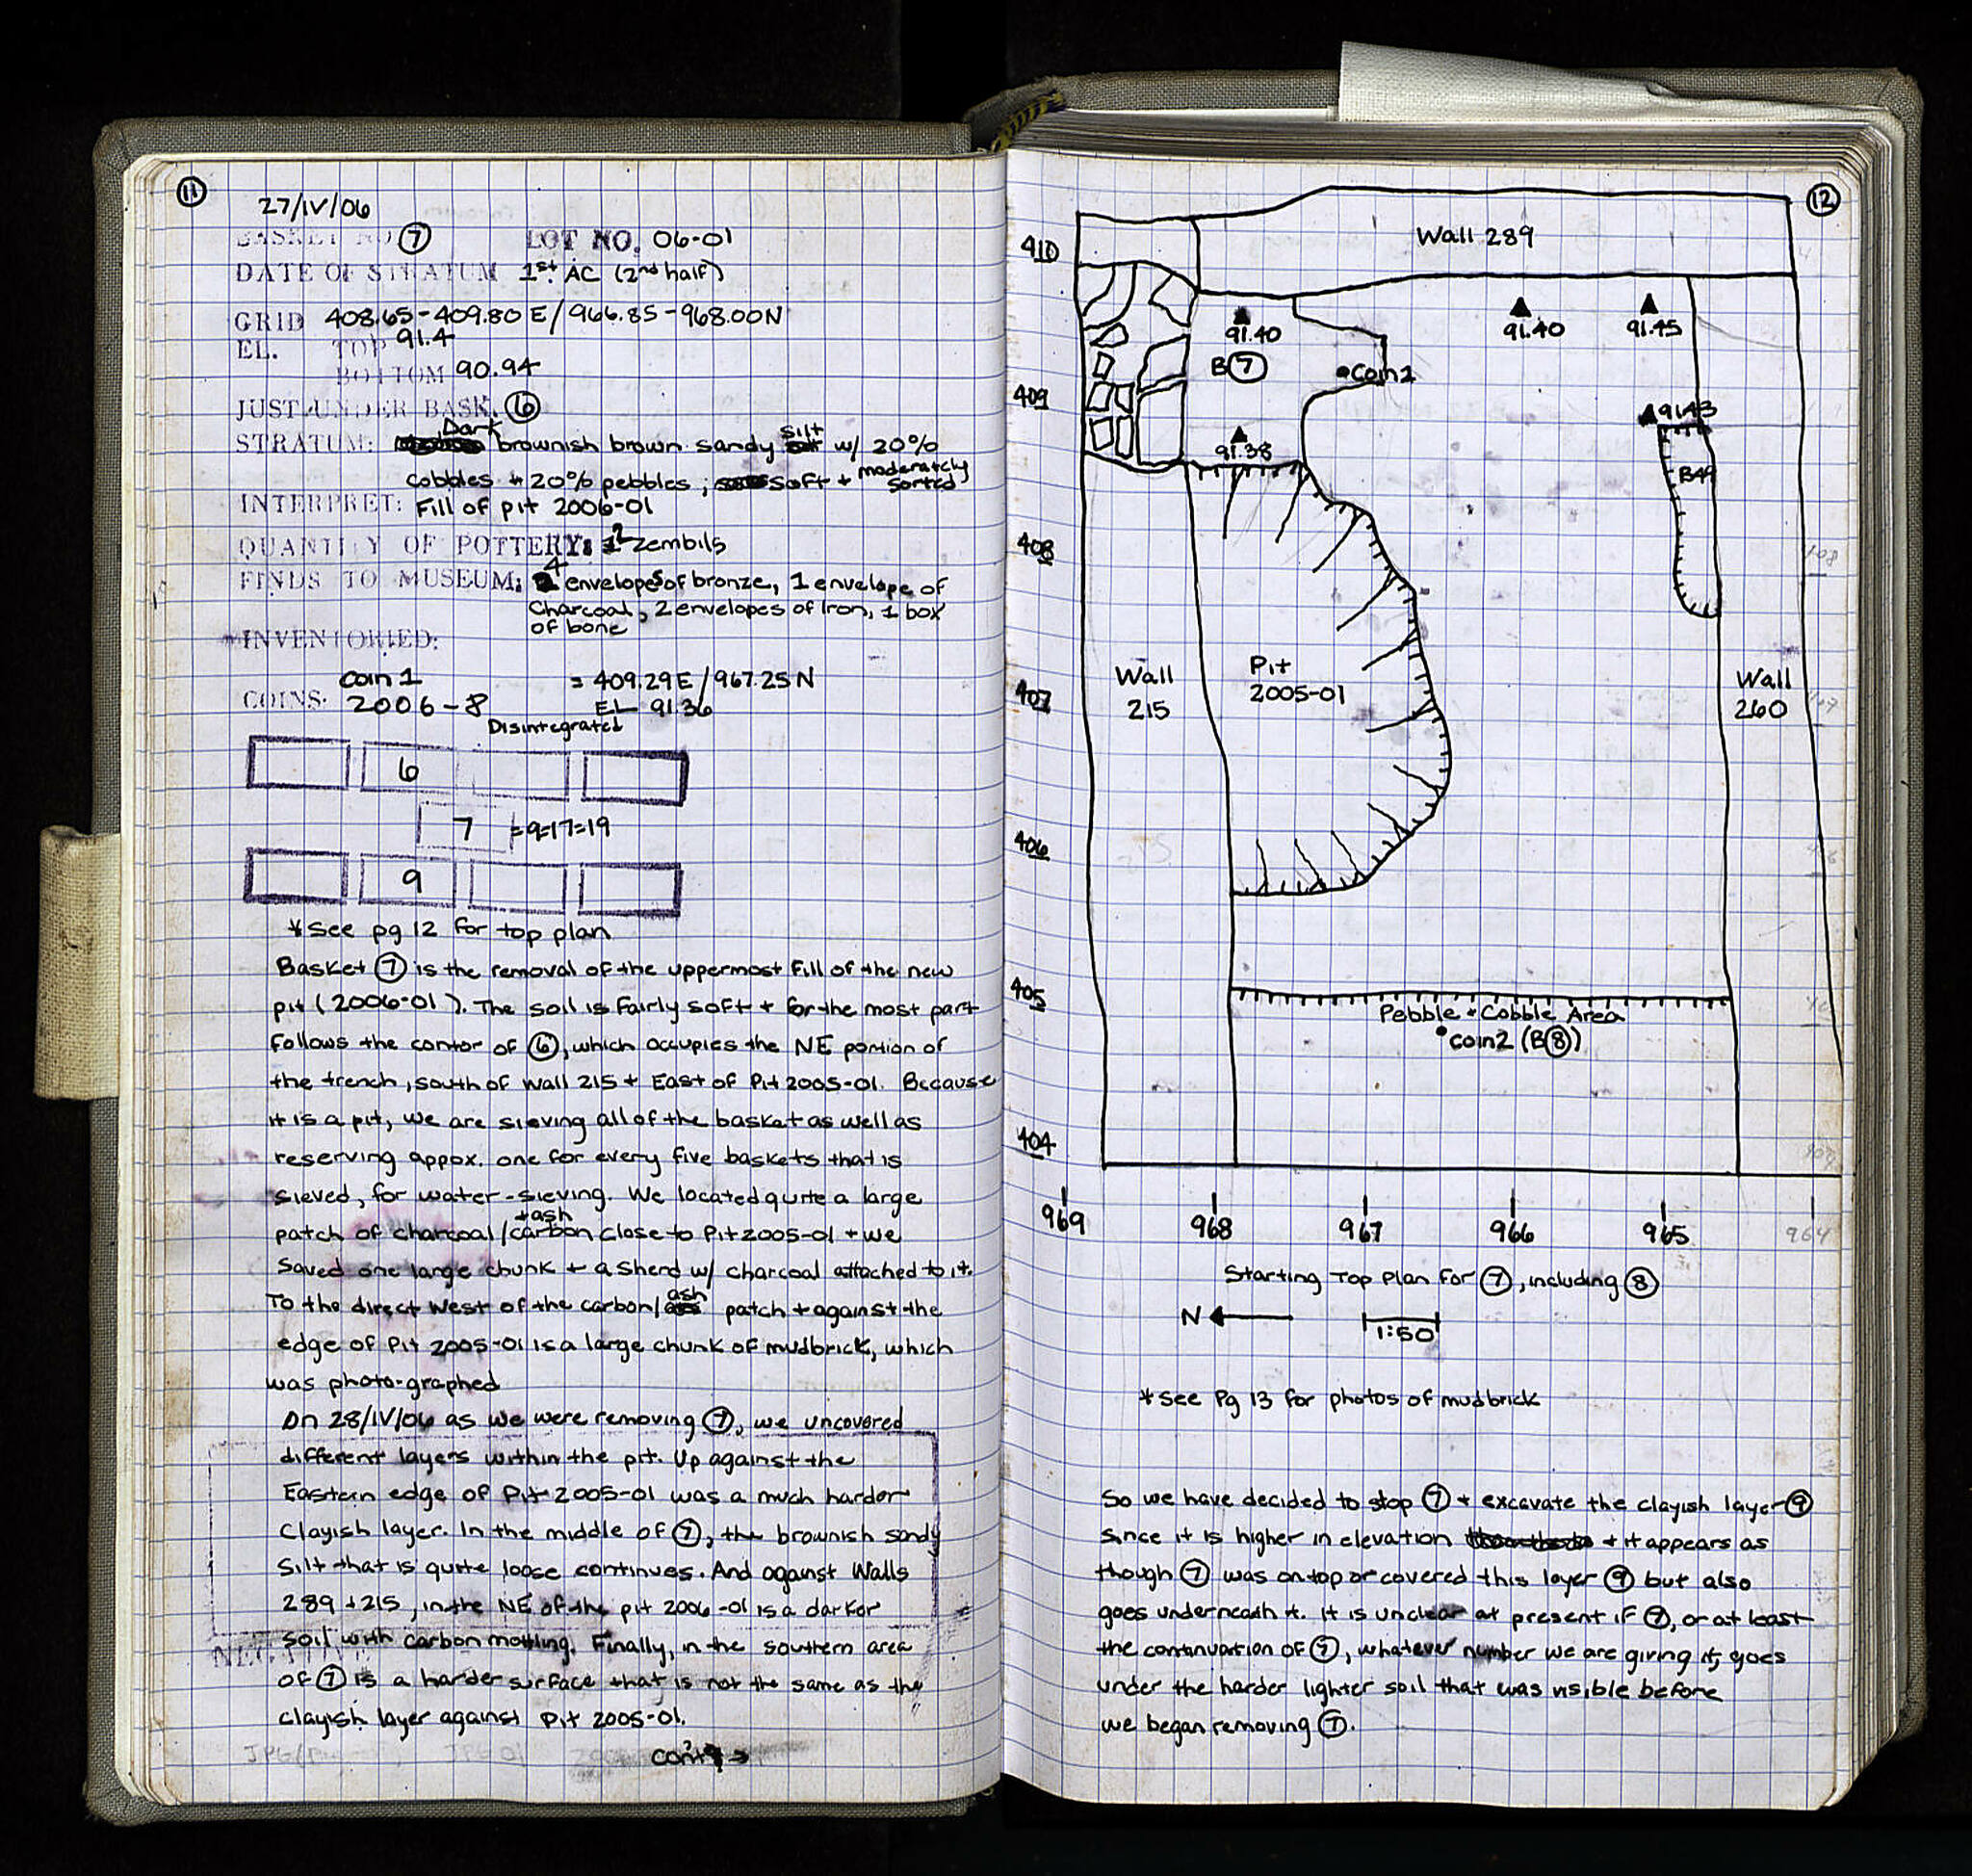 11
27/IV/06
BASKET NO 7 LOT NO. 06-01
DATE OF STRATUM 1st AC (2nd half)
GRID 408.65-409.80 E/966.85-968.00N
EL. TOP 91.4
BOTTOM 90.94
JUST UNDER BASK. 6
STRATUM: Dark brownish brown sandy silt w/ 20%
cobbles + 20% pebbles; soft + moderately sorted
INTERPRET: Fill of pit 2006-01
QUANTITY OF POTTERY: 2 zembils
FINDS TO MUSEUM: 4 envelopes of bronze, 1 envelope of
Charcoal, 2 envelopes of Iron, 1 box
of bone
INVENTORIED:
Coin 1 = 409.29E/967.25N
COINS: 2006-8 EL 91.36
Disintegrated
6
7 =9=17=19
9
*See pg 12 for top plan
Basket 7 is the removal of the uppermost fill of the new
pit (2006-01). The soil is fairly soft + for the most part
follows the contor of 6, which occupies the NE portion of
the trench, south of Wall 215 + East of Pit 2005-01. Because
it is a pit, we are sieving all of the basket as well as
reserving appox. one for every five baskets that is
sieved, for water-sieving. We located quite a large
patch of charcoal/carbon +ash close to Pit 2005-01 + we
saved one large chunk + a sherd w/ charcoal attached to it.
To the direct West of the carbon/ash patch + against the
edge of Pit 2005-01 is a large chunk of mudbrick, which
was photo-graphed
On 28/IV/06 as we were removing 7, we uncovered
different layers within the pit. Up against the
Eastern edge of Pit 2005-01 was a much harder
Clayish layer. In the middle of 7, the brownish sandy
Silt that is quite loose continues. And against Walls
289 + 215, in the NE of the pit 2006-01 is a darker
soil with carbon mottling. Finally, in the southern area
NEGATIVE
of 7 is a harder surface that is not the same as the
clayish layer against Pit 2005-01.
cont →
12
410
Wall 289
91.40
91.40
91.45
B7
Coin 1
409
91.43
91.38
B49
408
Wall
215
Pit
2005-01
Wall
260
407
406
405
Pebble + Cobble Area
coin2 (B8)
404
969 968 967 966 965 964
Starting Top Plan for 7, including 8
N
1:50
*See Pg 13 for photos of mudbrick
So we have decided to stop 7 + excavate the clayish layer 9
since it is higher in elevation + it appears as
though 7 was on top or covered this layer 9 but also
goes underneath it. It is unclear at present if 7, or at least
the continuation of 7, whatever number we are giving it, goes
under the harder lighter soil that was visible before
we began removing 7.